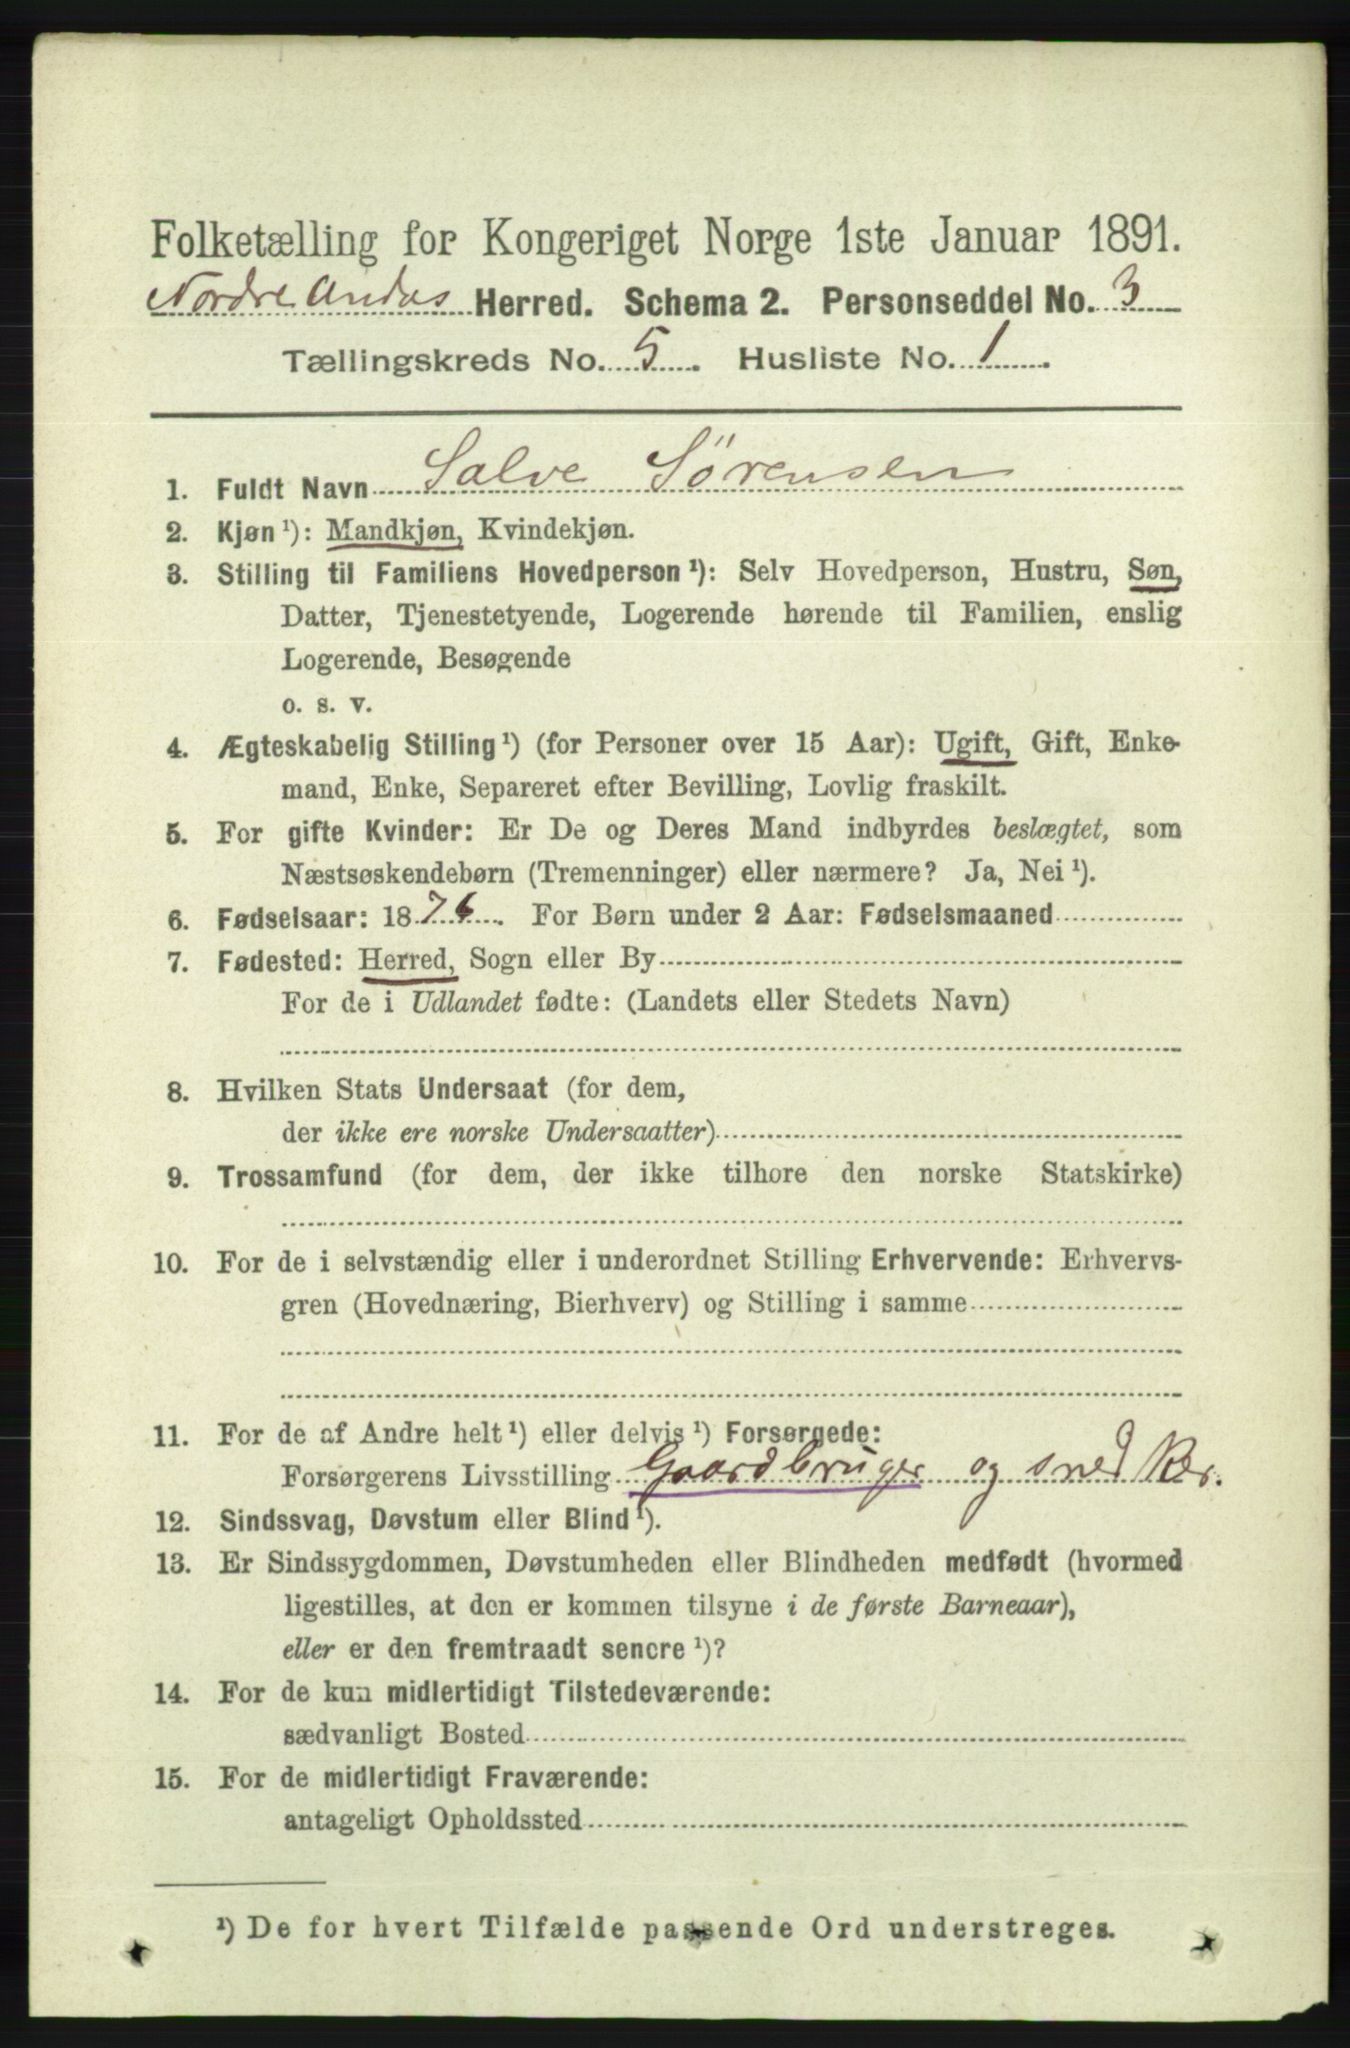 Folketælling for Kongeriget Norge 1ste Januar 1891.
Nordre Undas Herred. Schema 2. Personseddel No. 3
Tællingskreds No. 5. Husliste No. 1.
1. Fuldt Navn Salve Sørensen
2. Kjøn ¹): Mandkjøn, Kvindekjøn.
3. Stilling til Familiens Hovedperson ¹): Selv Hovedperson, Hustru, Søn,
Datter, Tjenestetyende, Logerende hørende til Familien, enslig
Logerende, Besøgende
o. s. v.
4. Ægteskabelig Stilling ¹) (for Personer over 15 Aar): Ugift, Gift, Enke-
mand, Enke, Separeret efter Bevilling, Lovlig fraskilt.
5. For gifte Kvinder: Er De og Deres Mand indbyrdes beslægtet, som
Næstsøskendebørn (Tremenninger) eller nærmere? Ja, Nei ¹).
6. Fødselsaar: 1876. For Børn under 2 Aar: Fødselsmaaned
7. Fødested: Herred, Sogn eller By
For de i Udlandet fødte: (Landets eller Stedets Navn)
8. Hvilken Stats Undersaat (for dem,
der ikke ere norske Undersaatter)
9. Trossamfund (for dem, der ikke tilhøre den norske Statskirke)
10. For de i selvstændig eller i underordnet Stilling Erhvervende: Erhvervs-
gren (Hovednæring, Bierhverv) og Stilling i samme
11. For de af Andre helt ¹) eller delvis ¹) Forsørgede:
Forsørgerens Livsstilling Gaardbruger og snedker.
12. Sindssvag, Døvstum eller Blind ¹).
13. Er Sindssygdommen, Døvstumheden eller Blindheden medfødt (hvormed
ligestilles, at den er kommen tilsyne i de første Barneaar),
eller er den fremtraadt senere ¹)?
14. For de kun midlertidigt Tilstedeværende:
sædvanligt Bosted
15. For de midlertidigt Fraværende:
antageligt Opholdssted
¹) De for hvert Tilfælde passende Ord understreges.